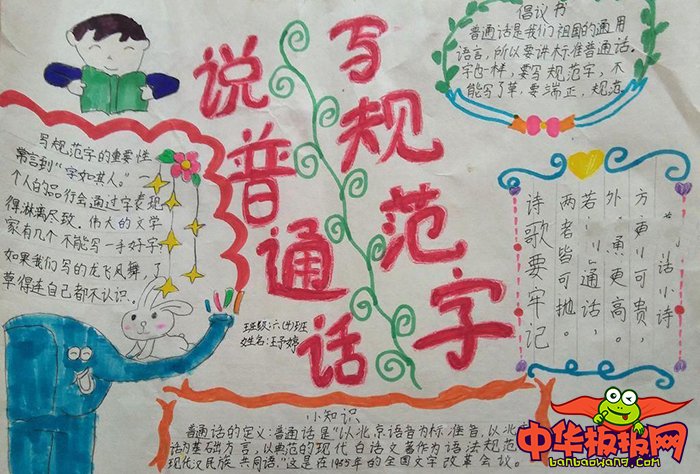 说普通话
写规范字
倡议书
普通话是我们祖国的通用
语言,所以要讲标准普通话。
字也一样,要写规范字,不
能写了草,要端正,规范
写规范字的重要性
常言到"字如其人。"一
个人的品行会通过字表现
得淋漓尽致。伟大的文学
家有几个不能写一手好字?
如果我们写的龙飞凤舞,了
草得连自己都不认识。
话小诗
方更可贵,
外勇更高。
若 通话,
两者皆可抛。
诗歌要牢记
班级:六(4)班
姓名:王予婷
小知识
普通话的定义:普通话是"以北京语音为标准音,以北
话为基础方言,以典范的现代白话文著作为语法规范
现代汉民族共同语。"这是在1955年的全国文字改革会议
中华板报网
banbaowang.com